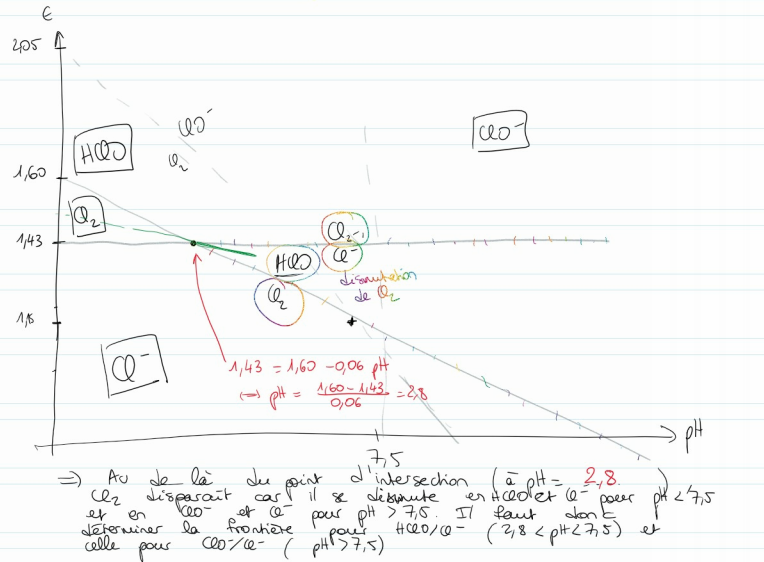 E
2,05
ClO⁻
ClO⁻
HClO
Cl₂
1,60
Cl₂
1,43
Cl₂
Cl⁻
HClO
dismutation
de Cl₂
Cl₂
1,8
Cl⁻
1,43 = 1,60 - 0,06 pH
⟺ pH = (1,60 - 1,43)/0,06 = 2,8
pH
7,5
⇒) Au de là du point d'intersection (à pH = 2,8. )
Cl₂ disparait car il se dismute en HClO et Cl⁻ pour pH < 7,5
et en ClO⁻ et Cl⁻ pour pH > 7,5. Il faut donc
déterminer la frontière pour HClO/Cl⁻ (2,8 < pH < 7,5) et
celle pour ClO⁻/Cl⁻ ( pH > 7,5)